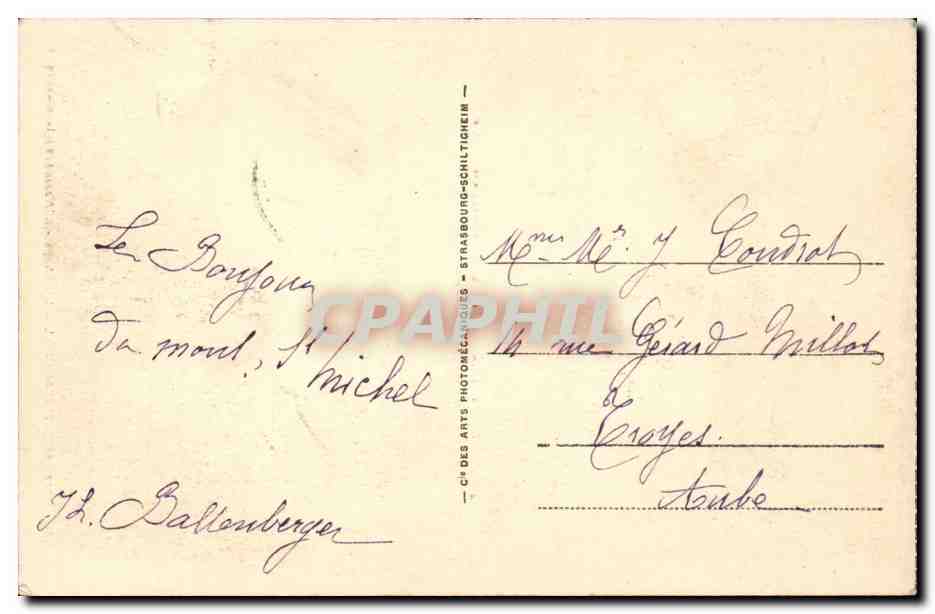 Le Bonjour
du mont St
Michel
Th. Baltenberger
— Cie DES ARTS PHOTOMÉCANIQUES - STRASBOURG-SCHILTIGHEIM —
CPAPHIL
Mme Mr. J Condrot
14 rue Gérard Millot
à
Troyes.
Aube